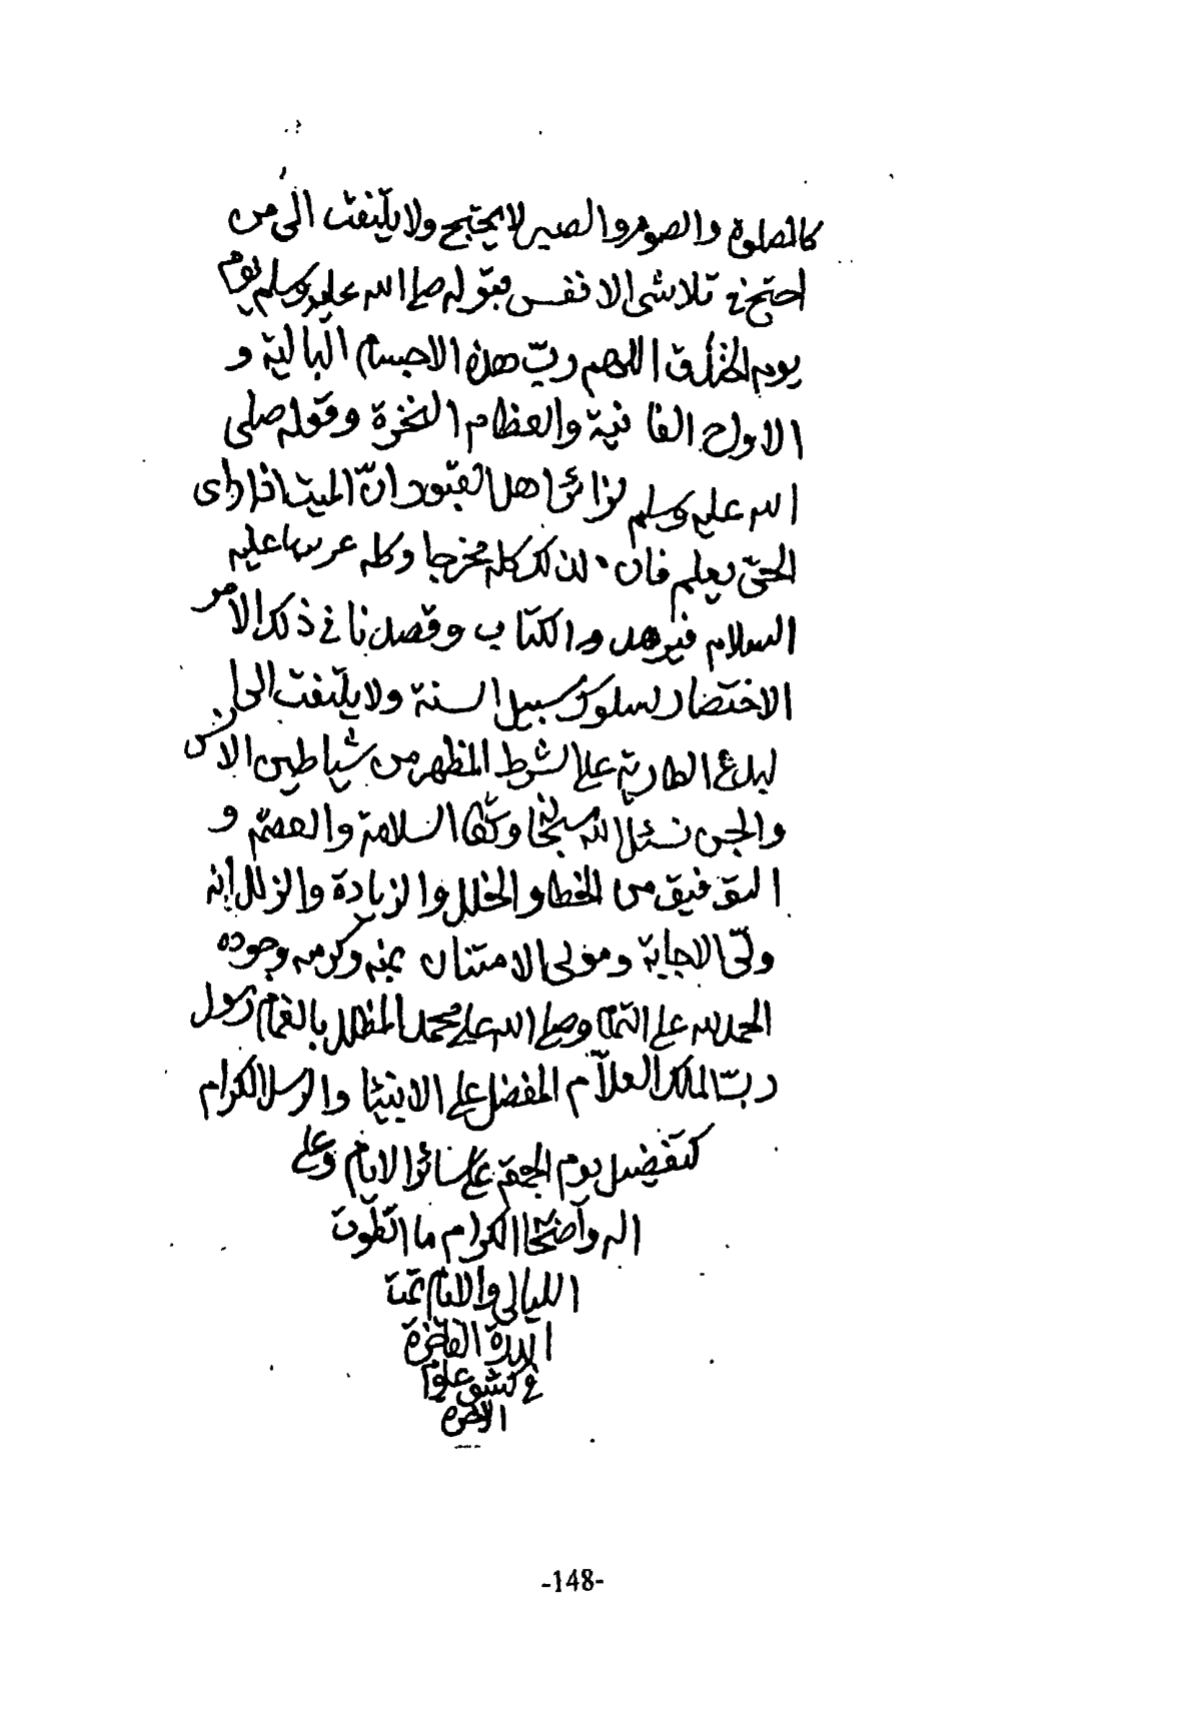 كالصلوة والصوم والصبر لا يحتج ولا يلتفت الى من
احتج في تلاشى الانفس بقوله صلى الله عليه وسلم يوم
يوم الخندق اللهم رب هذه الاجسام البالية و
الارواح الفانية والعظام النخرة وقوله صلى
الله عليه وسلم لزائر اهل القبور انّ الميت اذا راى
الحى يعلم فان لذلك كله مخرجا وكله عليه
السلام والكتاب وقصدنا في ذلك الأمر
الاختصار لسلوك سبيل السنة ولا يلتفت الى
البدع الطارية على الشرط المظهر من شياطين الانس
والجن نسئل الله سبحانه السلامة والعصمة و
التوفيق من الخطا والخلل والزيادة والزلل إنه
ولىّ الاجابة ومولى الامتنان بمنه وكرمه وجوده
الحمد لله على التمام وصلى الله على محمد المظلل بالغمام رسول
ربّ الملك العلاّم المفضل على الانبيا والرسل الكرام
كتفضيل يوم الجمعة على سائر الايام وعلى
اله وأصحابه الكرام ما انطوت
الليالى والايام تمت
الدرة الفاخرة
في كشف علوم
الاخرة
-148-